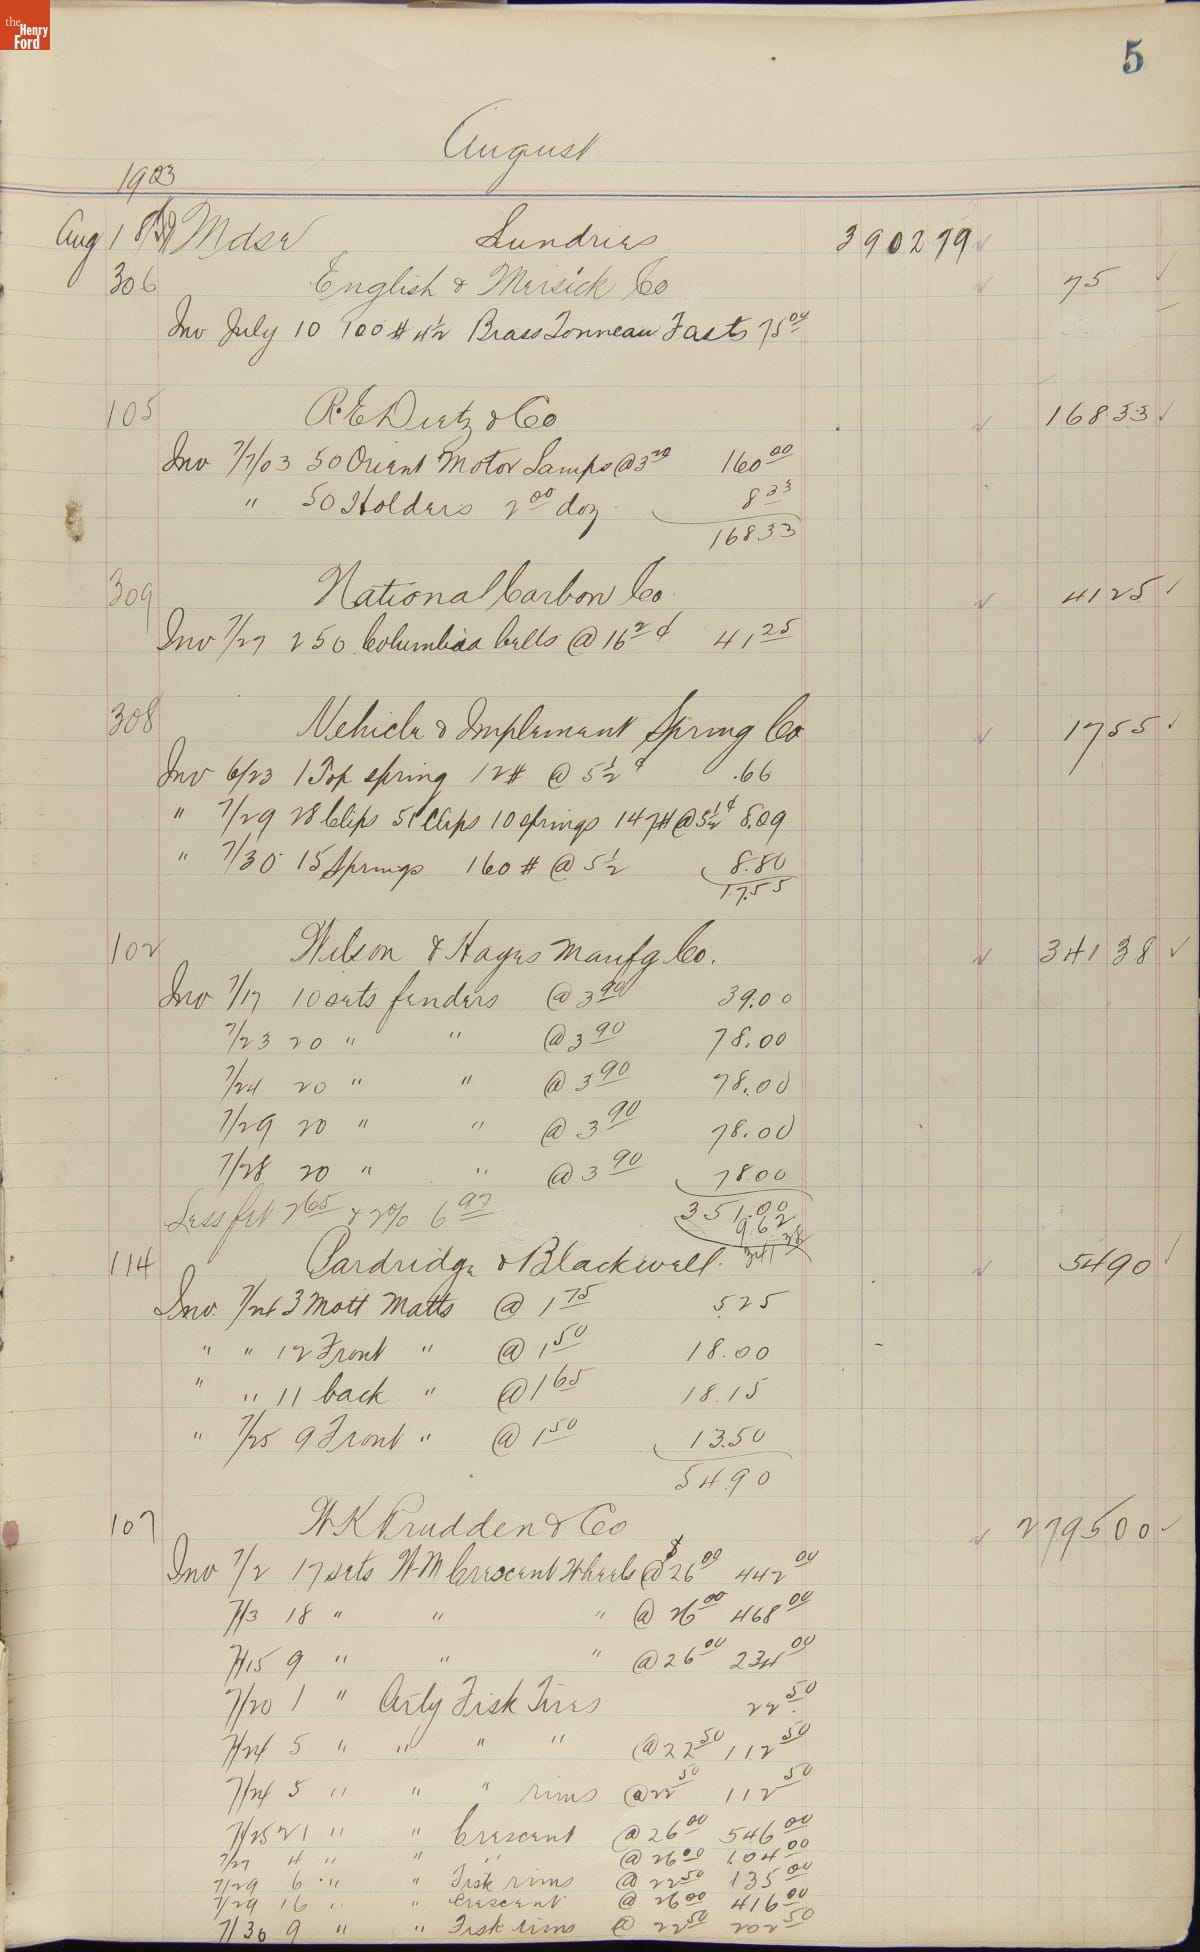 the Henry Ford
5
August
1903
Aug 1 Mdse Sundries 3902 79
306 English & Mersick Co 75
Inv July 10 100 # 4½ Brass Tonneau Fasts 75 00
105 R. E. Dietz & Co 168.33
Inv 7/7/03 50 Orient Motor Lamps @ 3 20 160 00
" 50 Holders 2 00 doz 8 33
168 33
309 National Carbon Co. 41 25
Inv 7/27 250 Columbia Cells @ 16 2 ¢ 41 25
308 Vehicle & Implement Spring Co 17 55
Inv 6/23 1 Top spring 12# @ 5½ ¢ .66
" 7/29 28 Clips 51 Clips 10 springs 147# @ 5½ ¢ 8.09
" 7/30 15 Springs 160 # @ 5½ 8.80
17.55
102 Wilson & Hayes Manfg Co. 341 38
Inv 7/17 10 sets fenders @ 3 90 39.00
7/23 20 " " @ 3 90 78.00
7/24 20 " " @ 3 90 78.00
7/29 20 " " @ 3 90 78.00
7/28 20 " " @ 3 90 78.00
Less frt 2 65 & 2% 6 97 351.00
9.62
341 38
114 Pardridge & Blackwell. 54 90
Inv. 7/24 3 Mott Matts @ 1 75 5.25
" " 12 Front " @ 1 50 18.00
" " 11 back " @ 1 65 18.15
" 7/25 9 Front " @ 1 50 13.50
54.90
107 W K Prudden & Co 2795 00
Inv 7/2 17 sets W M Crescent Wheels @ $ 26 00 442 00
7/3 18 " " " @ 26 00 468 00
7/15 9 " " " @ 26 00 234 00
7/20 1 " Arty Fisk Tires 22 50
7/24 5 " " " " @ 22 50 112 50
7/24 5 " " " rims @ 22 50 112 50
7/25 21 " " Crescent @ 26 00 546 00
7/27 4 " " " @ 26 00 104 00
7/29 6 " " Fisk rims @ 22 50 135 00
7/29 16 " " Crescent @ 26 00 416 00
7/30 9 " " Fisk rims @ 22 50 202 50